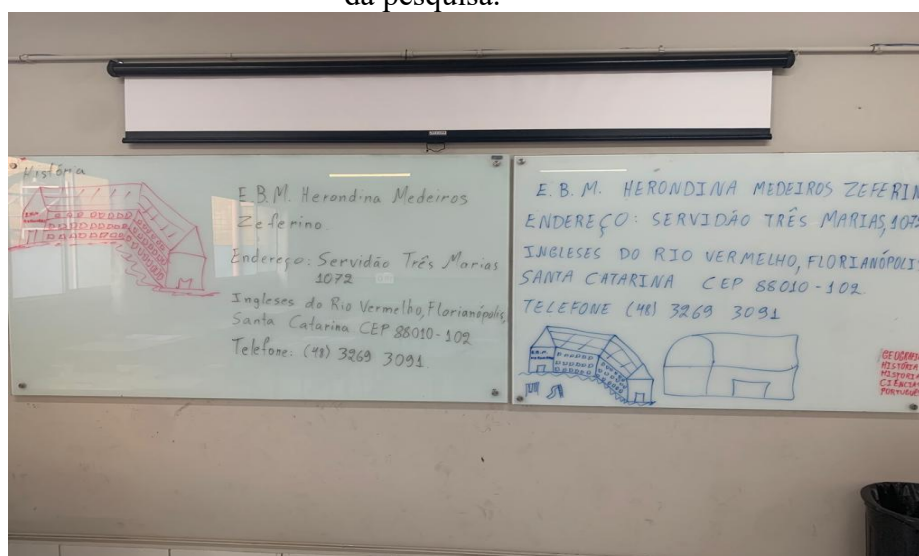 da pesquisa.
História
E.B.M. Herondina Medeiros
Zeferino
Endereço: Servidão Três Marias
1072
Ingleses do Rio Vermelho, Florianópolis,
Santa Catarina CEP 88010-102
Telefone: (48) 3269 3091
E. B. M. HERONDINA MEDEIROS ZEFERIN
ENDEREÇO: SERVIDÃO TRÊS MARIAS, 1072
INGLESES DO RIO VERMELHO, FLORIANÓPOLIS
SANTA CATARINA CEP 88010-102
TELEFONE (48) 3269 3091
E.B.M.
GEOGRAFIA
HISTÓRIA
HISTÓRIA
CIÊNCIAS
PORTUGUÊS